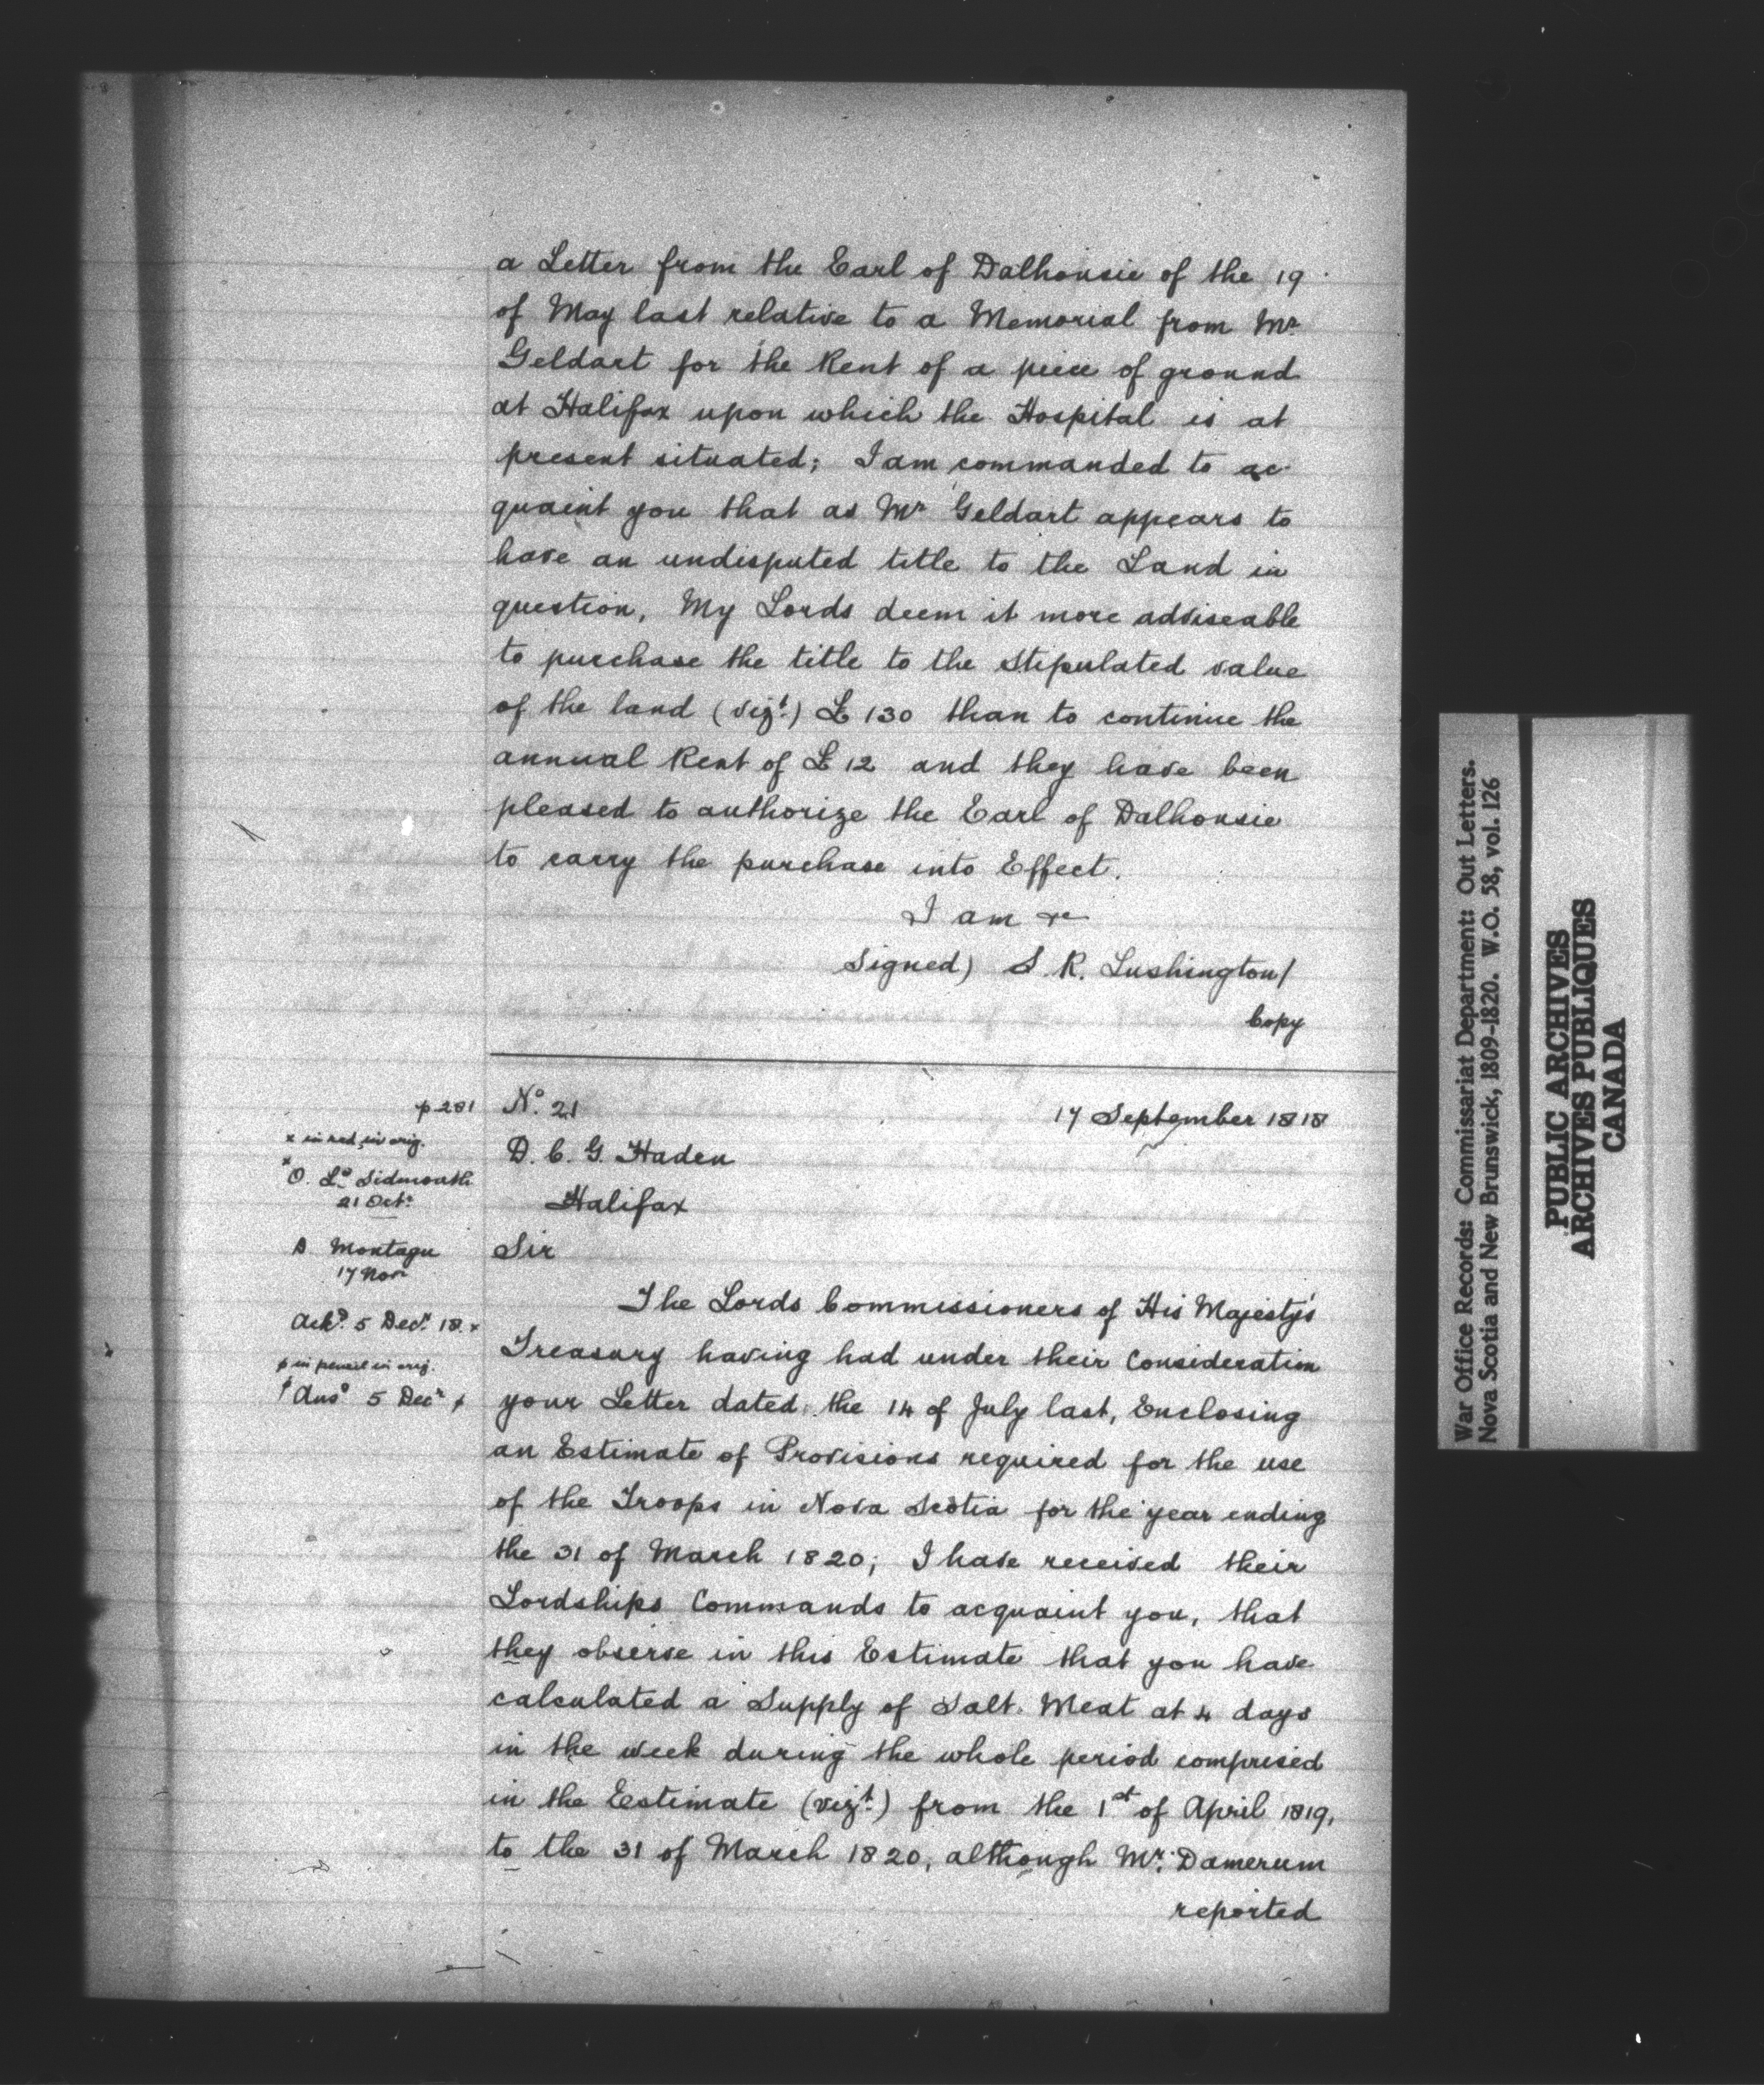 a Letter from the Earl of Dalhousie of the 19
of May last relative to a Memorial from Mr
Geldart for the Rent of a piece of ground
at Halifax upon which the Hospital is at
present situated; I am commanded to ac-
quaint you that as Mr Geldart appears to
have an undisputed title to the Land in
question, My Lords deem it more adviseable
to purchase the title to the stipulated value
of the land (vizt.) £130 than to continue the
annual Rent of £12 and they have been
pleased to authorize the Earl of Dalhousie
to carry the purchase into Effect.
I am &c
Signed) S. R. Lushington/
Copy
p 281
No. 21
17 September 1818
x in red in orig.
D. C. G. Haden
x O. Ld. Sidmouth
21 Octr.
Halifax
S. Montagu
17 Nov
Sir
The Lords Commissioners of His Majesty's
Ackd. 5 Decr. 18. x
Treasury having had under their Consideration
ɸ in pencil in orig.
ɸ Ansd 5 Decr ɸ
your Letter dated the 14 of July last, Enclosing
an Estimate of Provisions required for the use
of the Troops in Nova Scotia for the year ending
the 31 of March 1820; I have received their
Lordships Commands to acquaint you, that
they observe in this Estimate that you have
calculated a Supply of Salt Meat at 4 days
in the week during the whole period comprised
in the Estimate (vizt.) from the 1st of April 1819,
to the 31 of March 1820, although Mr. Damerum
reported
War Office Records: Commissariat Department: Out Letters.
Nova Scotia and New Brunswick, 1809-1820. W.O. 58, vol. 126
PUBLIC ARCHIVES
ARCHIVES PUBLIQUES
CANADA